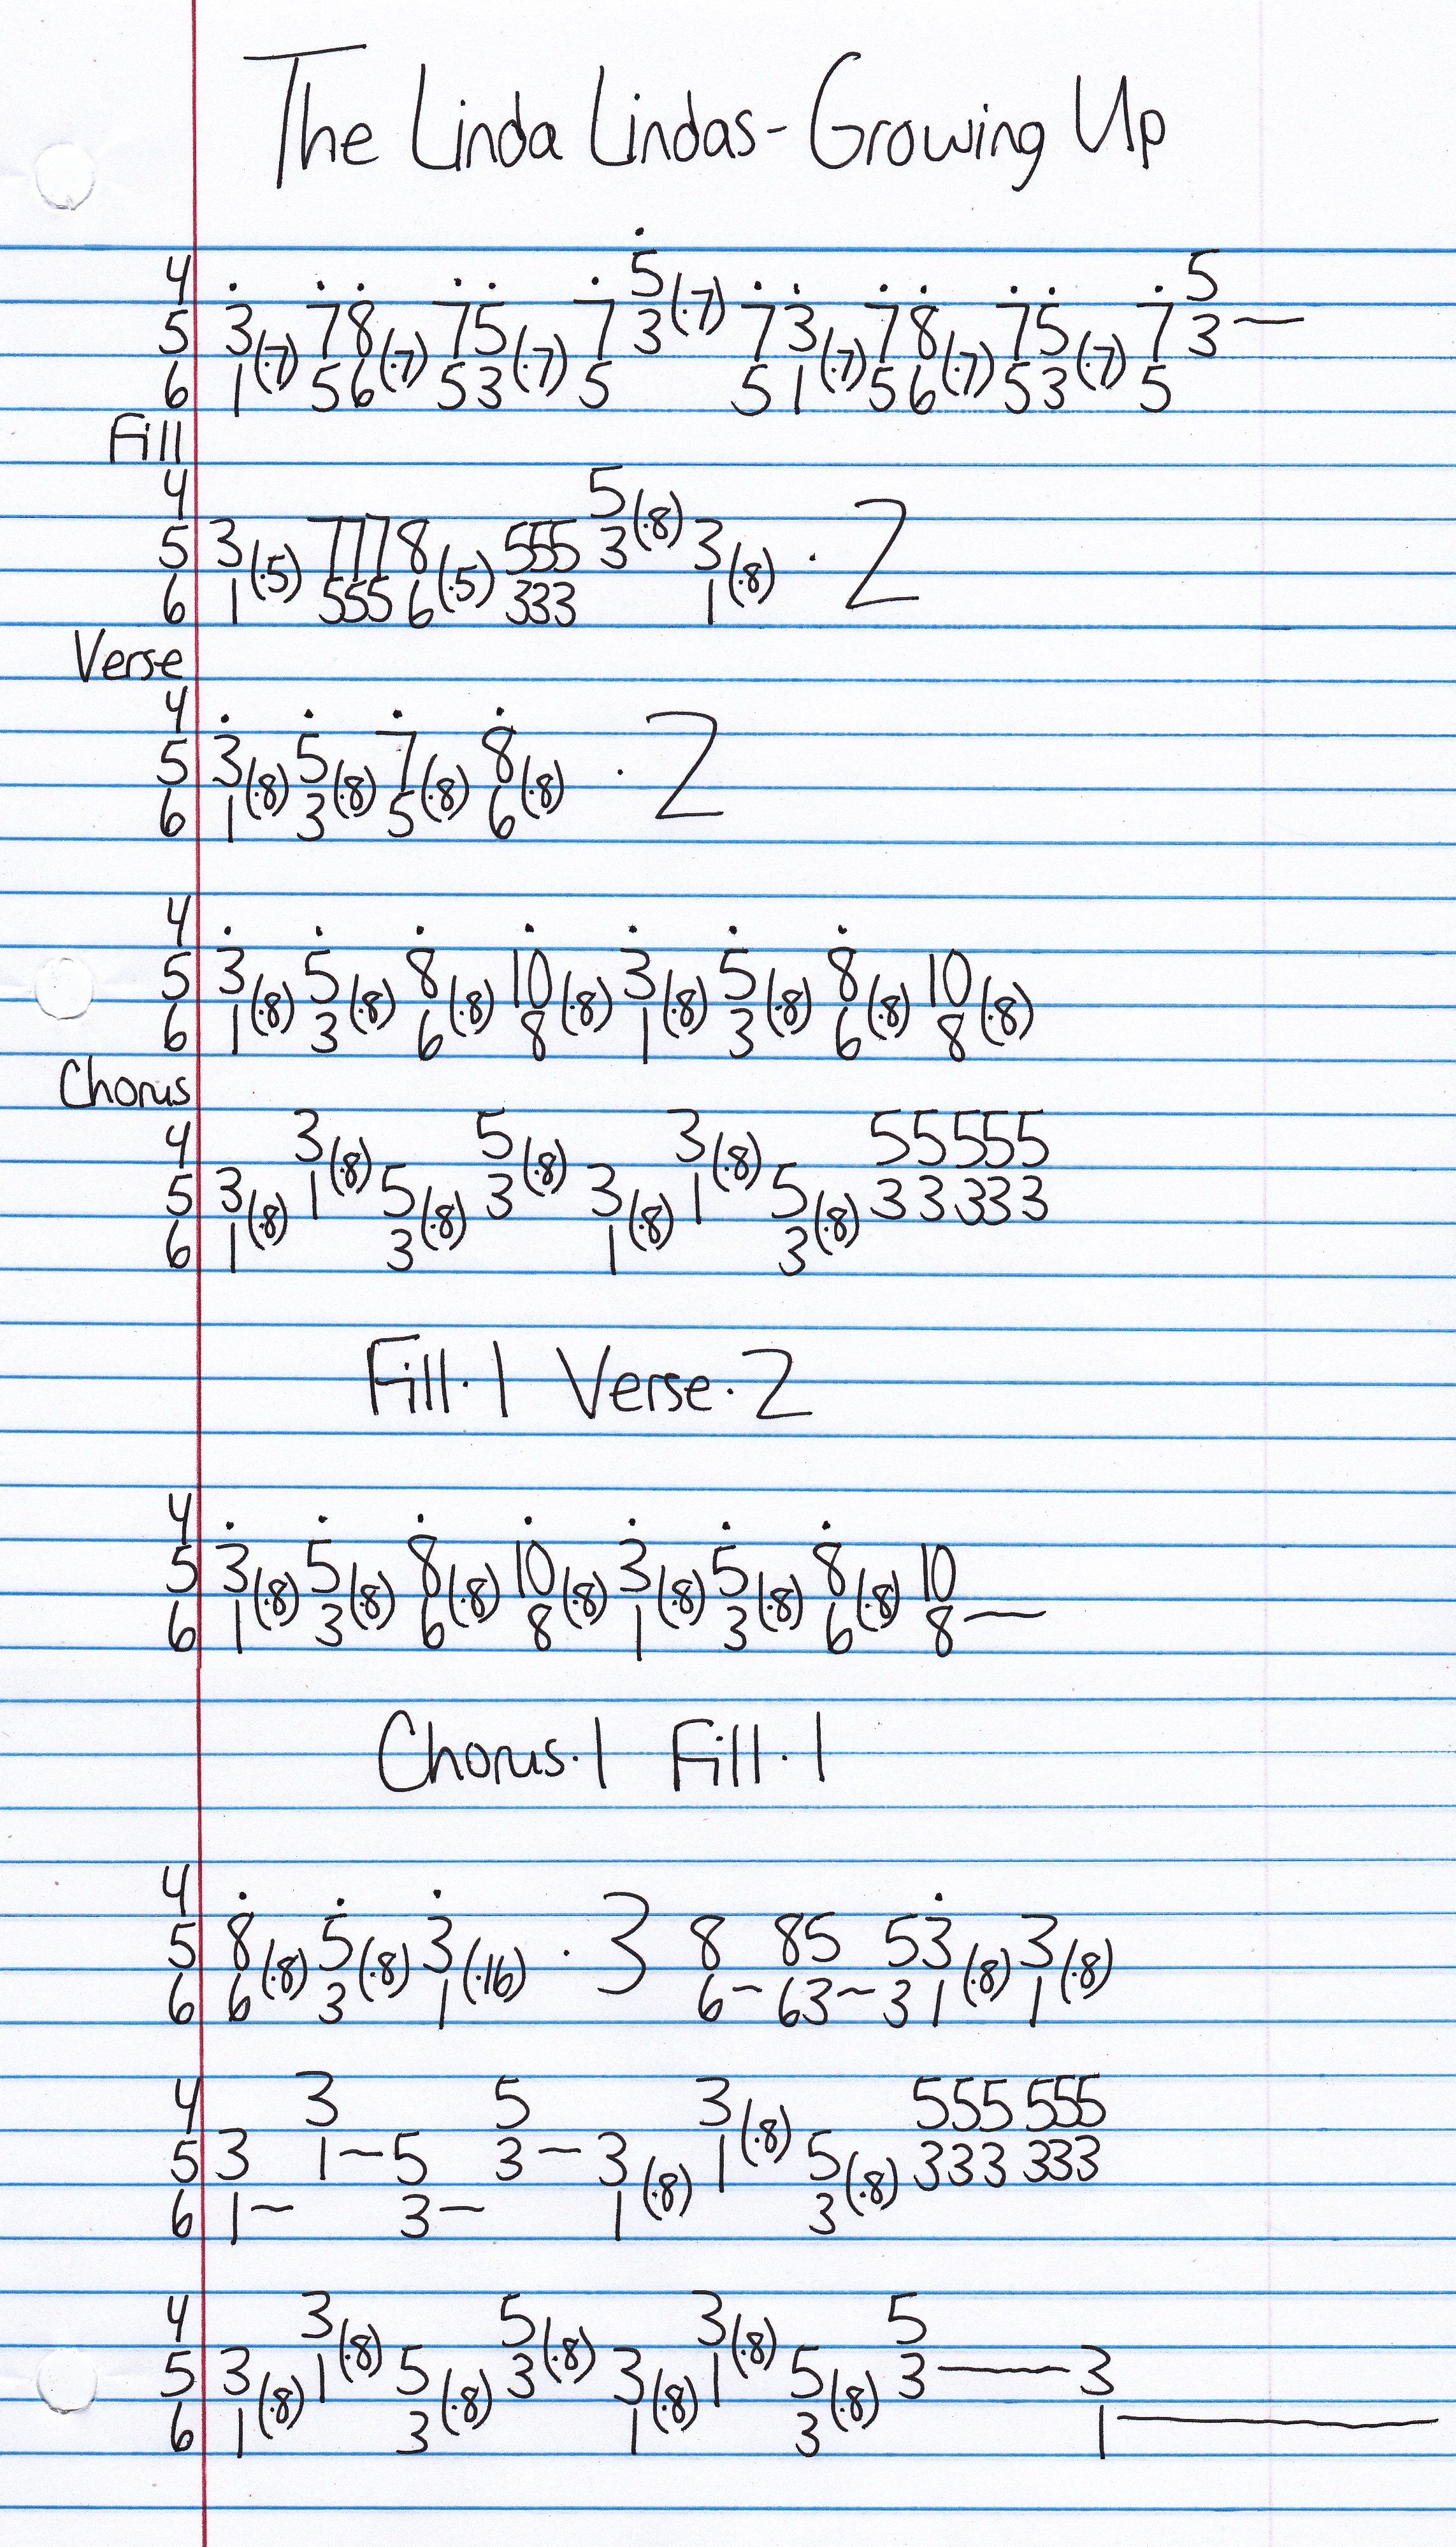 The Linda Lindas - Growing Up
4 5 5
5 3 78 75 7 3(·7) 73 78 75 7 3—
6 1(·7) 56(·7) 53(·7) 5 51(·7) 56(·7) 53(·7) 5
Fill
4 5
5 3 7778 555 3(·8) 3 ·2
6 1(·5) 5556(·5) 333 1(·8)
Verse
4
5 3 5 7 8 ·2
6 1(·8) 3(·8) 5(·8) 6(·8)
4
5 3 5 8 10 3 5 8 10
6 1(·8) 3(·8) 6(·8) 8(·8) 1(·8) 3(·8) 6(·8) 8(·8)
Chorus
4 3 5 3 55555
5 3 1(·8) 5 3(·8) 3 1(·8) 5 33333
6 1(·8) 3(·8) 1(·8) 3(·8)
Fill·1 Verse·2
4
5 3 5 8 10 3 5 8 10
6 1(·8) 3(·8) 6(·8) 8(·8) 1(·8) 3(·8) 6(·8) 8—
Chorus·1 Fill·1
4
5 8 5 3 ·3 8 85 53 3
6 6(·8) 3(·8) 1(·16) 6~63~31(·8) 1(·8)
4 3 5 3 555 555
5 3 1~5 3~3 1(·8) 5 333 333
6 1~ 3~ 1(·8) 3(·8)
4 3 5 3 5
5 3 1(·8) 5 3(·8) 3 1(·8) 5 3—3
6 1(·8) 3(·8) 1(·8) 3(·8) 1—